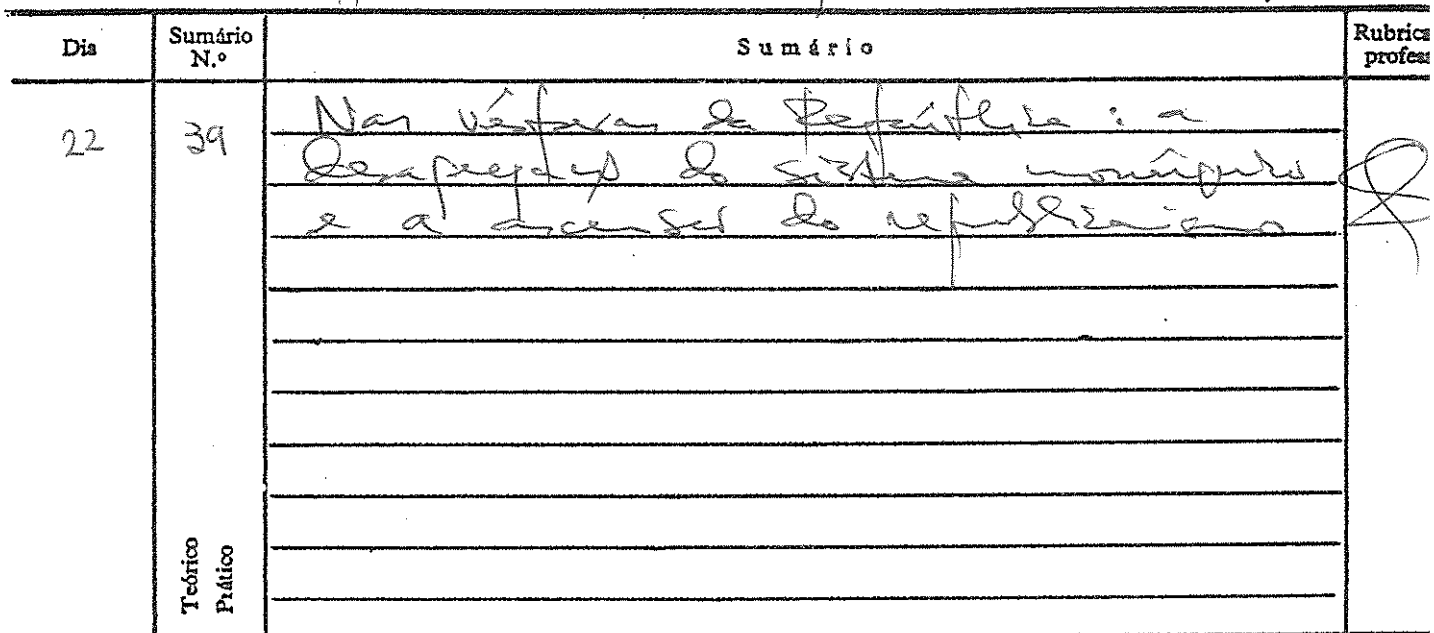 Dia Sumário N.º Sumário Rubrica profess
22 39 Nas vésperas da República : a
desagregação do sistema monárquico
e a ascensão do republicanismo
Teórico
Prático